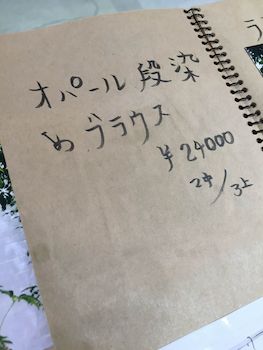 オパール段染
め ブラウス
¥24000
2中/3上
ラ